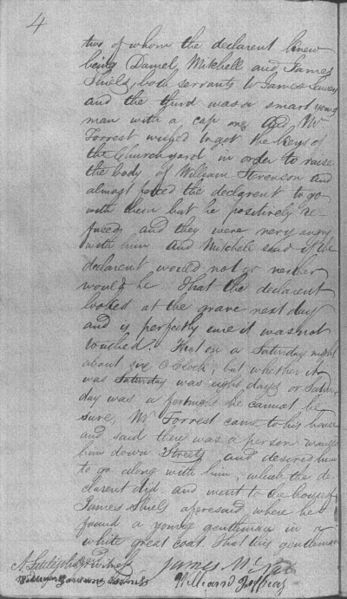 4
two of whom the declarent knew
being Daniel Mitchell and James
Shiels, both servants to James
and the third was a smart young
man with a cap on, And Mr
Forrest wished to get the keys of
the Churchyard in order to raise
the body of William Stevenson and
almost forced the declarent to go
with them but he positively re-
fused, and they were very angry
with him and Mitchell said if the
declarent would not go neither
would he. That the declarent
looked at the grave next day
and is perfectly sure it was not
touched. That on a Saturday night
about five O'Clock, but whether it
was Saturday was eight days or Satur-
day was a fortnight he cannot be
sure, Mr Forrest came to his house
and said there was a person wanted
him down Street, and desired him
to go along with him, which the de-
clarent did and went to the house of
James Shiels aforesaid where he
found a young gentleman in a
white great coat That this gentleman
James
William Jeffray